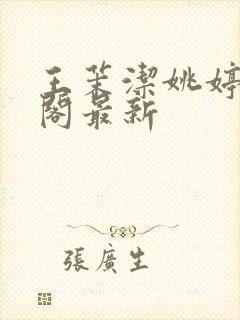 王茉潔姚婷
閣最新
張廣生